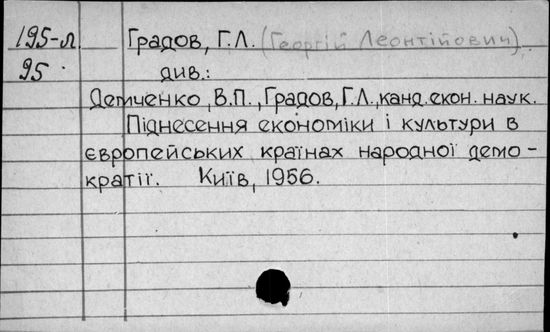 195-л Градов, Г.Л. (Георгій Леонтійович)
95 див.:
Демченко, В.П., Градов, Г.Л., канд. екон. наук.
Піднесення економіки і культури в
європейських країнах народної демо-
кратії. Київ, 1956.